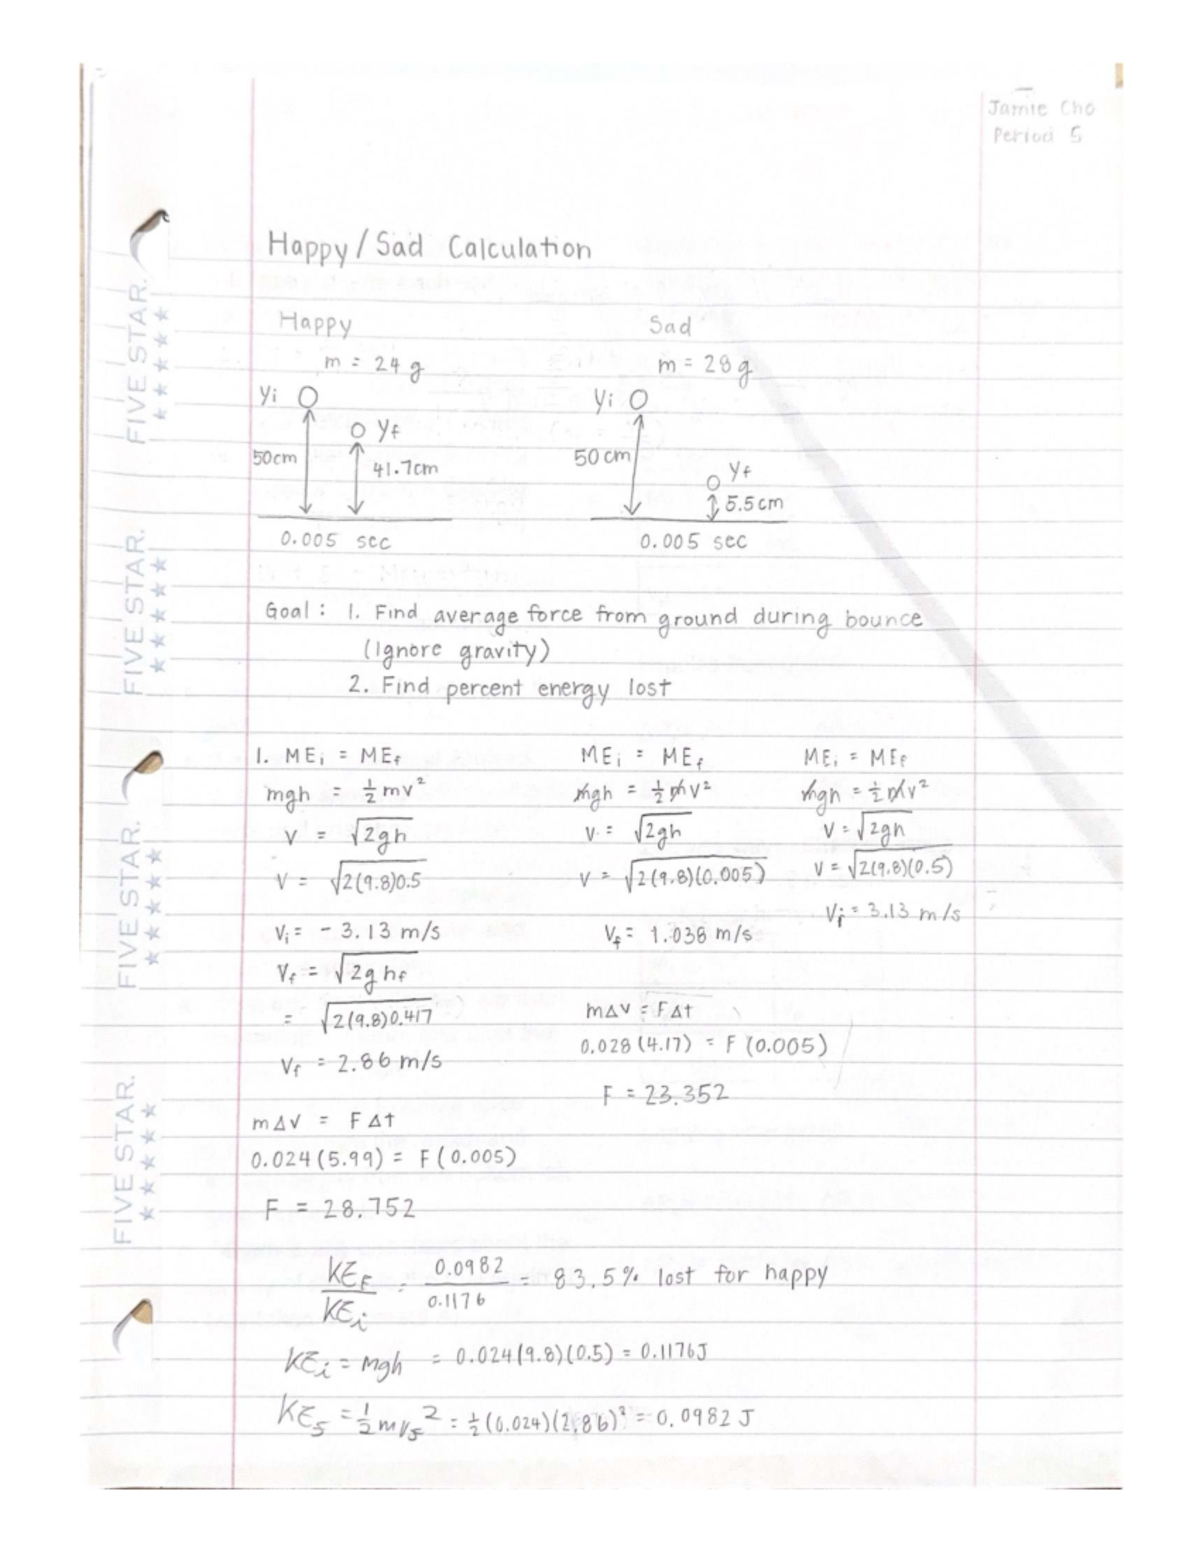 Jamie Cho
Period 5
Happy/Sad Calculation
Happy
m = 24 g
Yi
Yf
50cm
41.7cm
0.005 sec
Sad
m = 28 g
Yi
50 cm
Yf
5.5cm
0.005 sec
Goal: 1. Find average force from ground during bounce
(Ignore gravity)
2. Find percent energy lost
1. MEi = MEf
mgh = ½mv²
V = √2gh
V = √2(9.8)0.5
Vi = - 3.13 m/s
Vf = √2ghf
= √2(9.8)0.417
Vf = 2.86 m/s
m∆V = F∆t
0.024(5.99) = F(0.005)
F = 28.752
MEi = MEf
mgh = ½mv²
V = √2gh
V = √2(9.8)(0.005)
Vf = 1.038 m/s
m∆V = F∆t
0.028(4.17) = F(0.005)
F = 23.352
MEi = MEf
mgh = ½mv²
V = √2gh
V = √2(9.8)(0.5)
Vi = 3.13 m/s
KEf/KEi = 0.0982/0.1176 = 83.5% lost for happy
KEi = mgh = 0.024(9.8)(0.5) = 0.1176J
KEf = ½mvf² = ½(0.024)(2.86)² = 0.0982 J
FIVE STAR.
FIVE STAR.
FIVE STAR.
FIVE STAR.